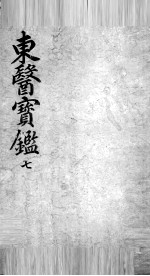 東醫寶鑑 七